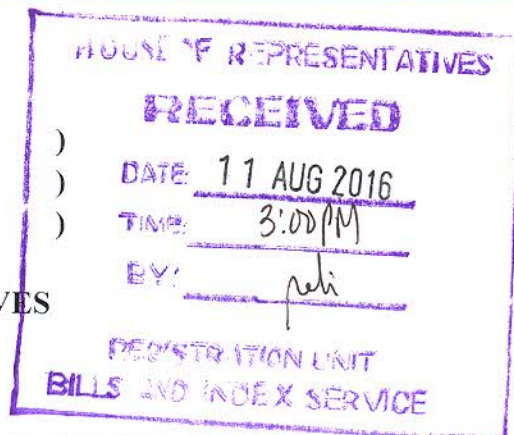 HOUSE OF REPRESENTATIVES
RECEIVED
)
) DATE: 11 AUG 2016
) TIME: 3:00 PM
BY:
VES
REGISTRATION UNIT
BILLS AND INDEX SERVICE